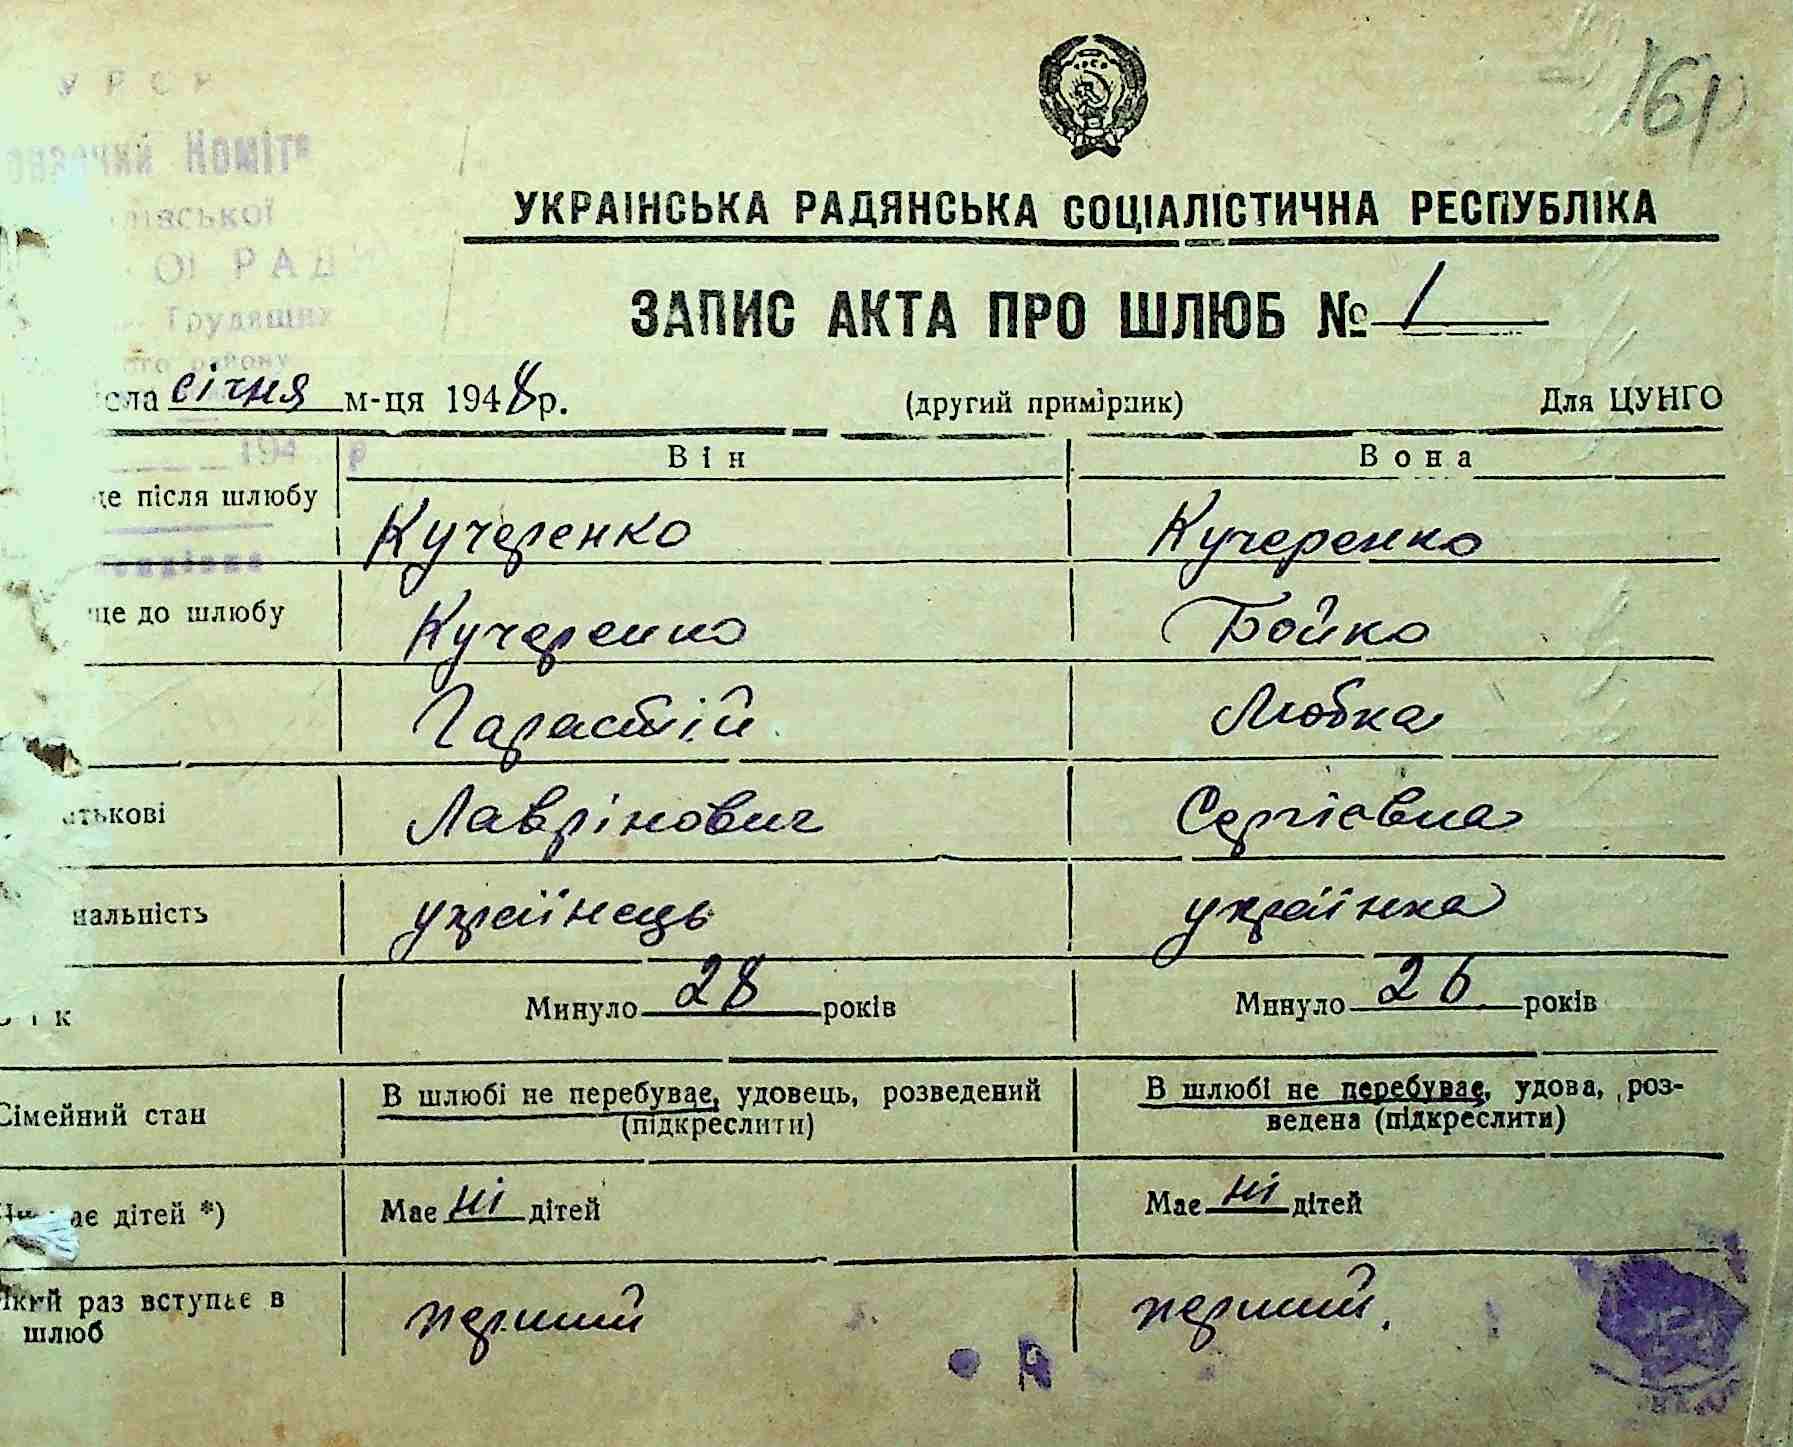 161
У Р С Р
Коміт
УКРАЇНСЬКА РАДЯНСЬКА СОЦІАЛІСТИЧНА РЕСПУБЛІКА
РАД
Трудящих
району
ЗАПИС АКТА ПРО ШЛЮБ № 1
сла січня м-ця 1948 р. (другий примірник) Для ЦУНГО
194 р
Він Вона
ще після шлюбу Кучеренко Кучеренко
ще до шлюбу Кучеренко Бойко
Гарастій Любка
атькові Лаврінович Сергієвна
нальність українець українка
Вік Минуло 28 років Минуло 26 років
Сімейний стан В шлюбі не перебуває, удовець, розведений В шлюбі не перебуває, удова, роз-
(підкреслити) ведена (підкреслити)
Чи має дітей *) Має ні дітей Має ні дітей
Який раз вступає в перший перший.
шлюб